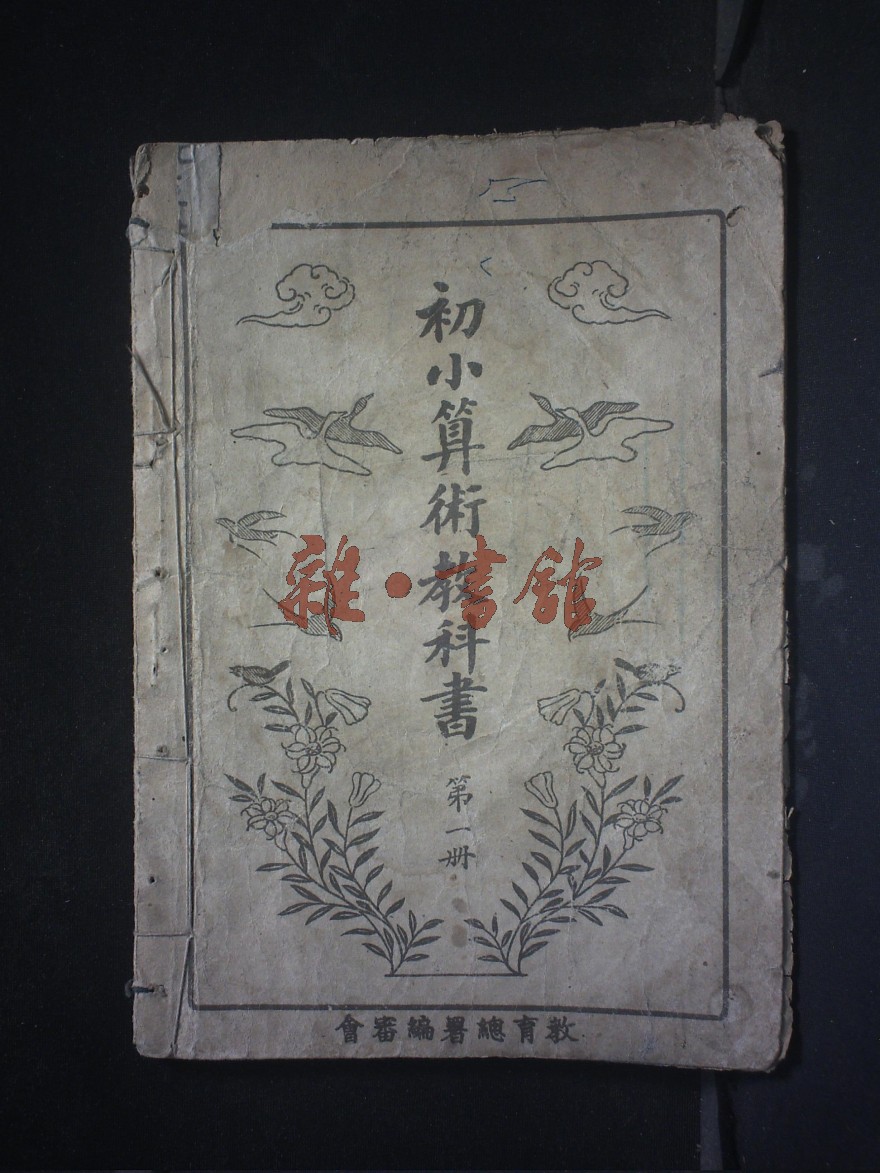 初小算術教科書
第一册
教育總署編審會
雜·書館